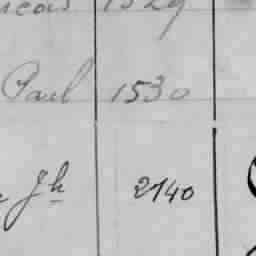 1529
Paul 1530
Jh 2140